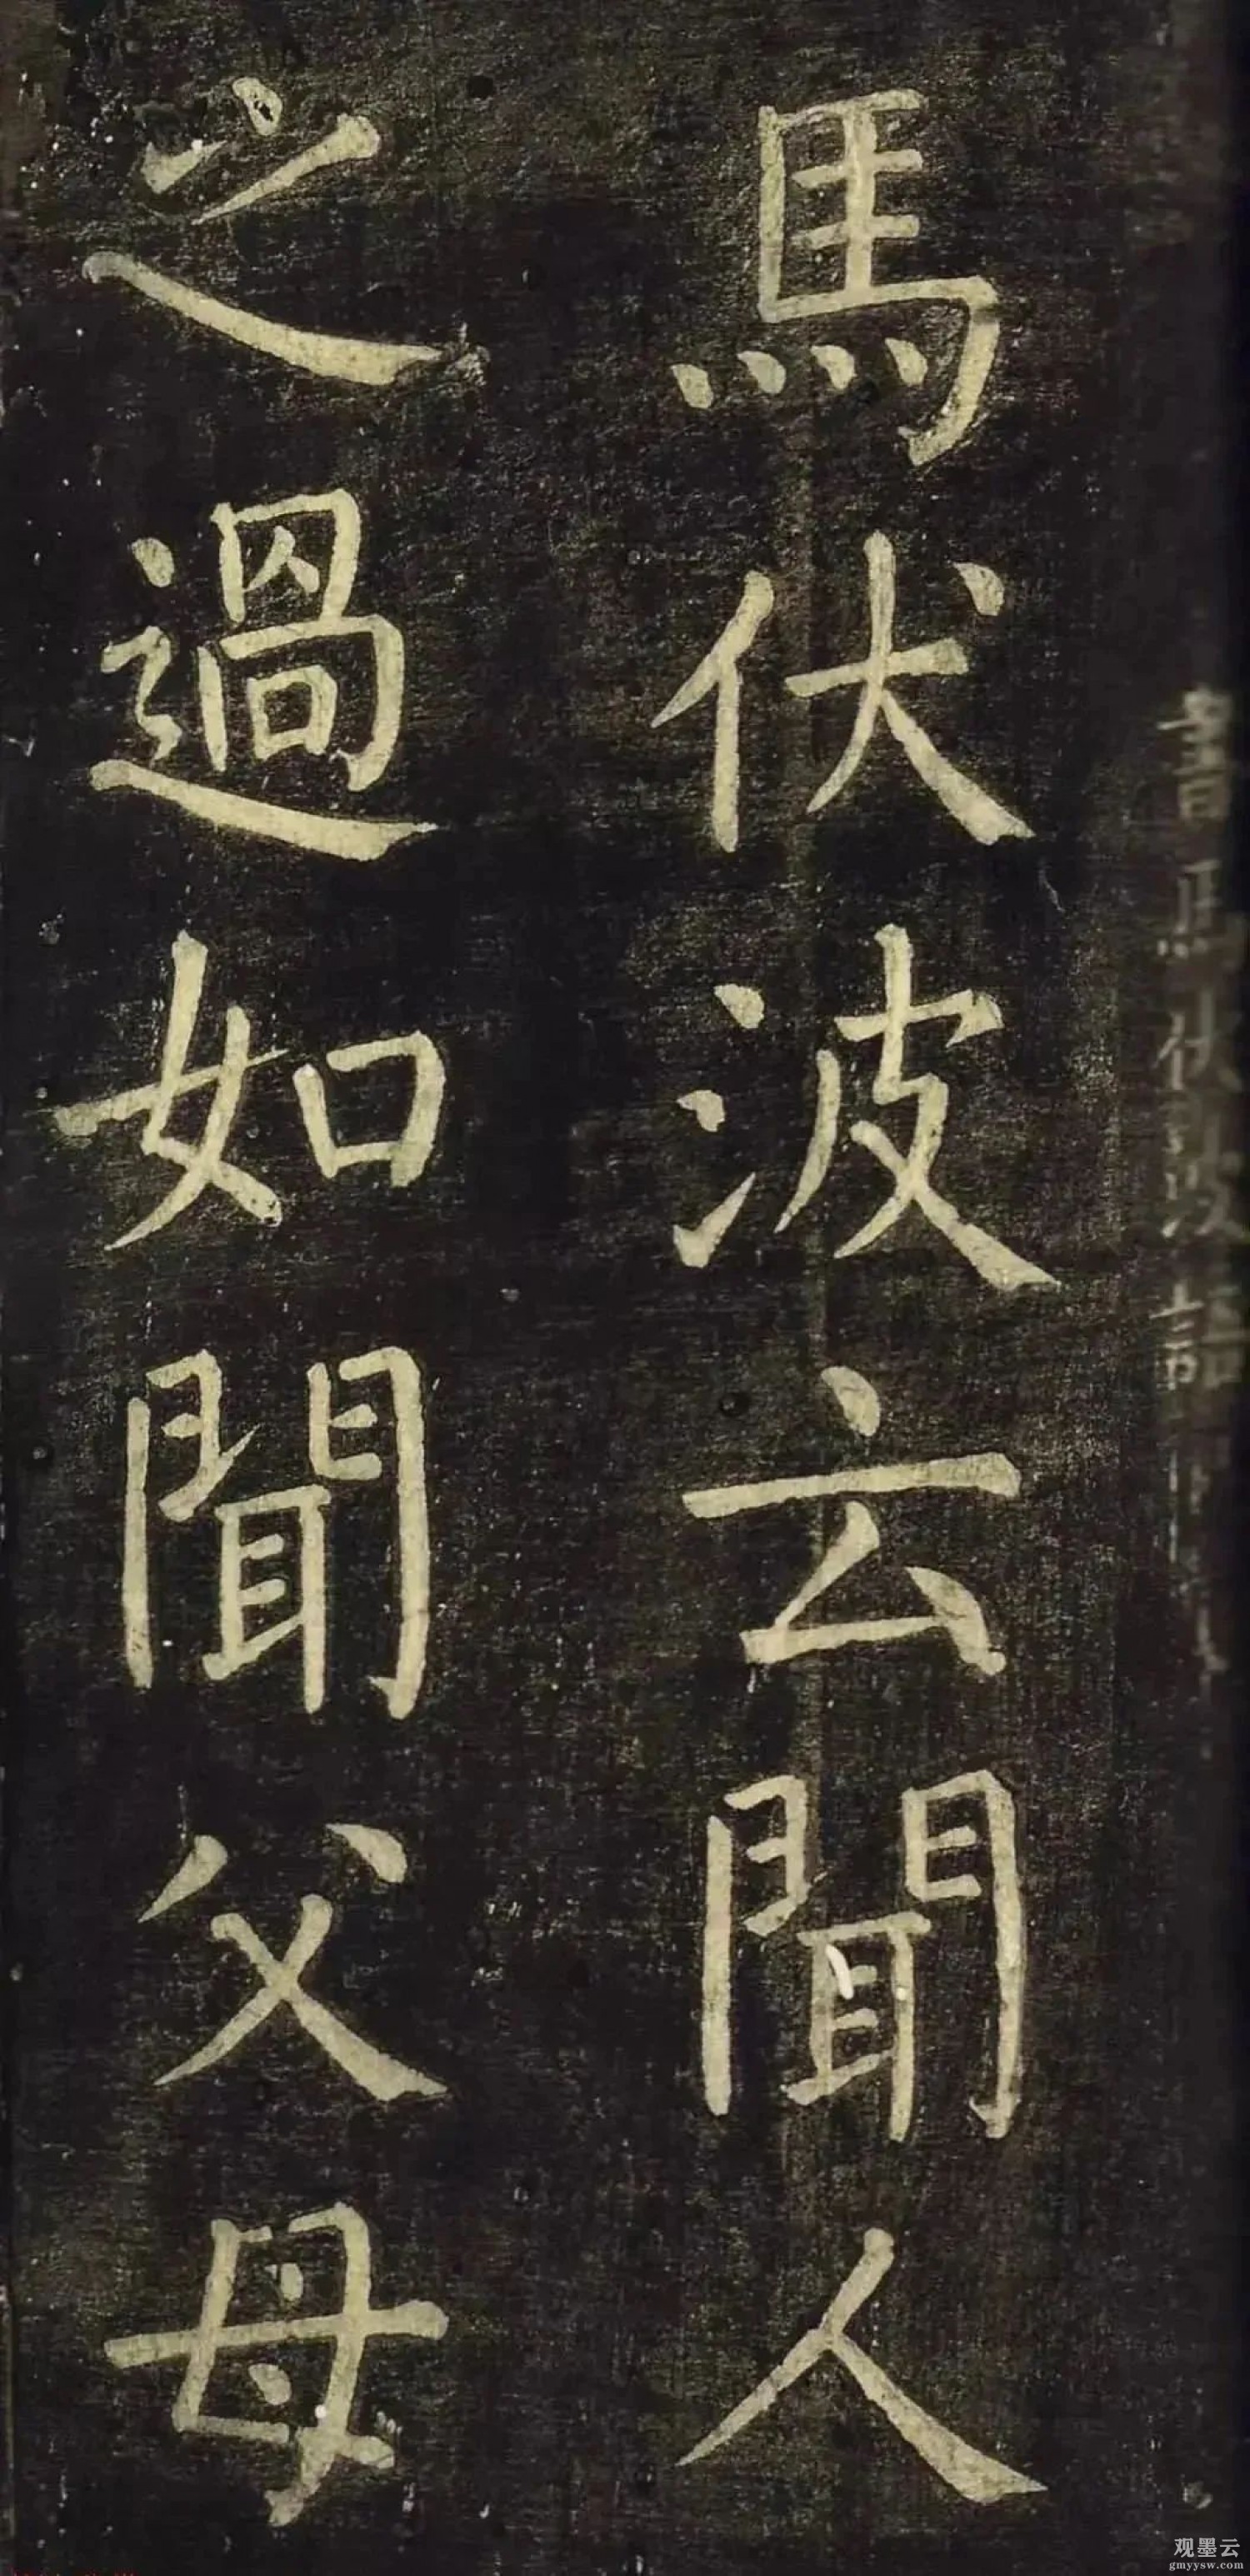 書馬伏波語
馬伏波云聞人
之過如聞父母
观墨云
gmyysw.com